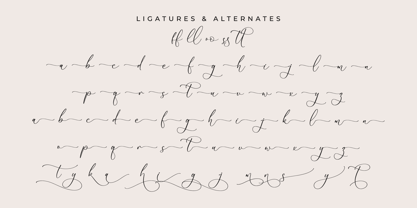 LIGATURES & ALTERNATES
ff ll oo ss tt
a b c d e f g h i j l m n
p q r s t u v w x y z
a b c d e f g h i j k l m n
o p q r s t u v w x y z
t y k a h i g y m n s y t